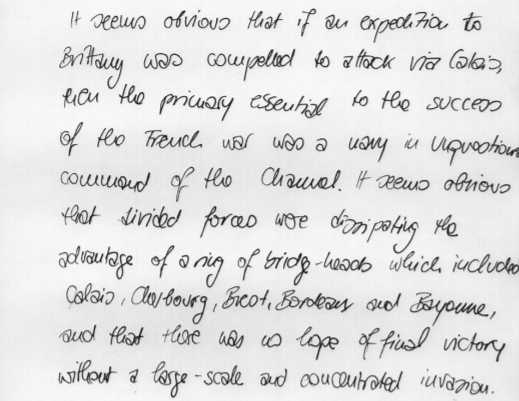 It seems obvious that if an expedition to
Brittany was compelled to attack via Calais,
then the primary essential to the success
of the French war was a navy in unquestione
command of the Channel. It seems obvious
that divided forces were dissipating the
advantage of a ring of bridge-heads which included
Calais, Cherbourg, Brest, Bordeaux and Bayonne,
and that there was no hope of final victory
without a large-scale and concentrated invasion.